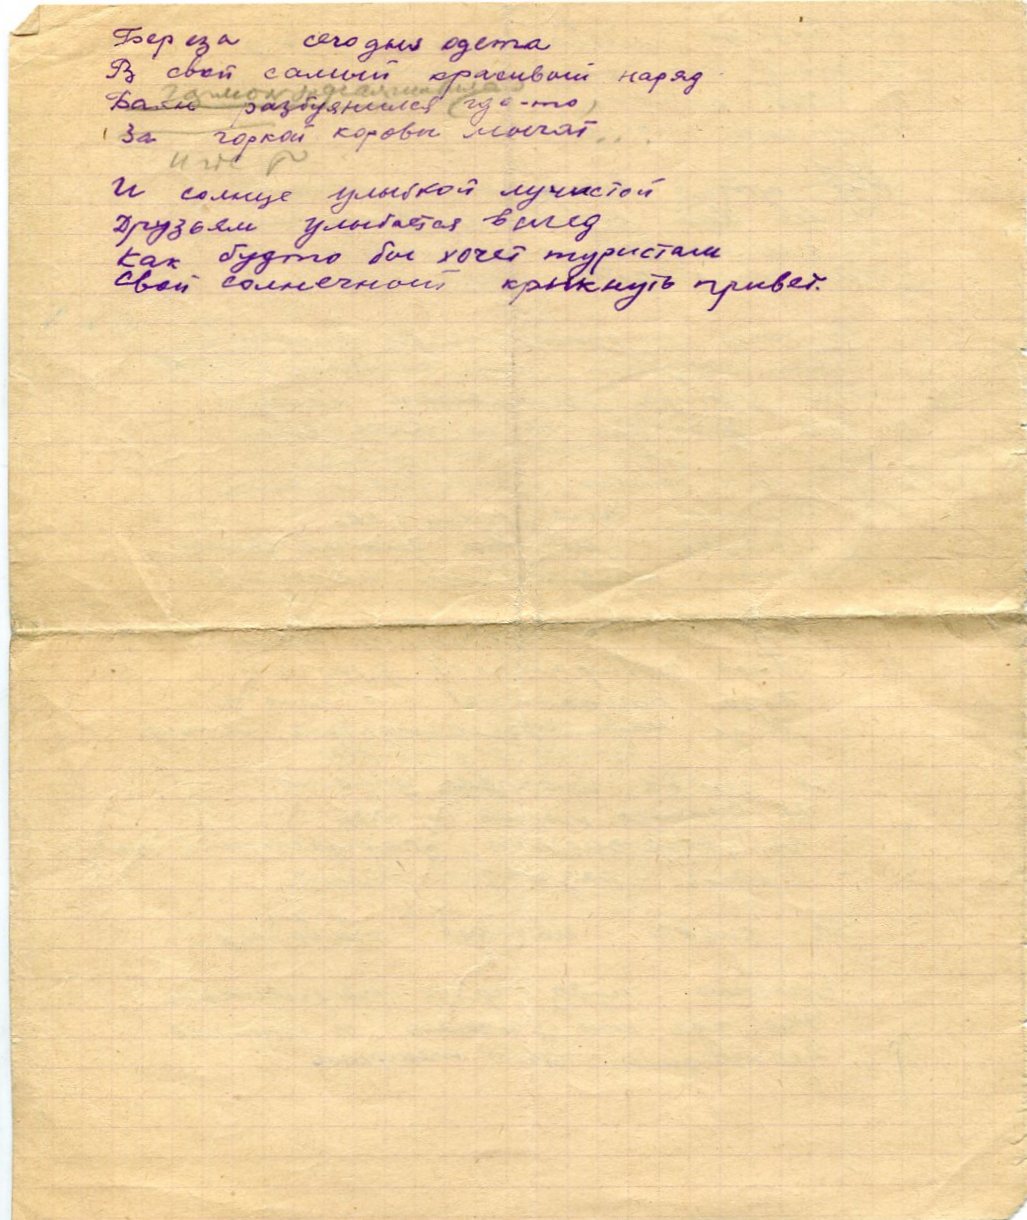 Береза сегодня одета
В свой самый красивый наряд
Баян разбуянился (где-то)
За горкой коровы мычат...
И солнце улыбкой лучистой
Друзьям улыбается вслед
Как будто бы хочет туристам
Свой солнечный крыкнуть привет.